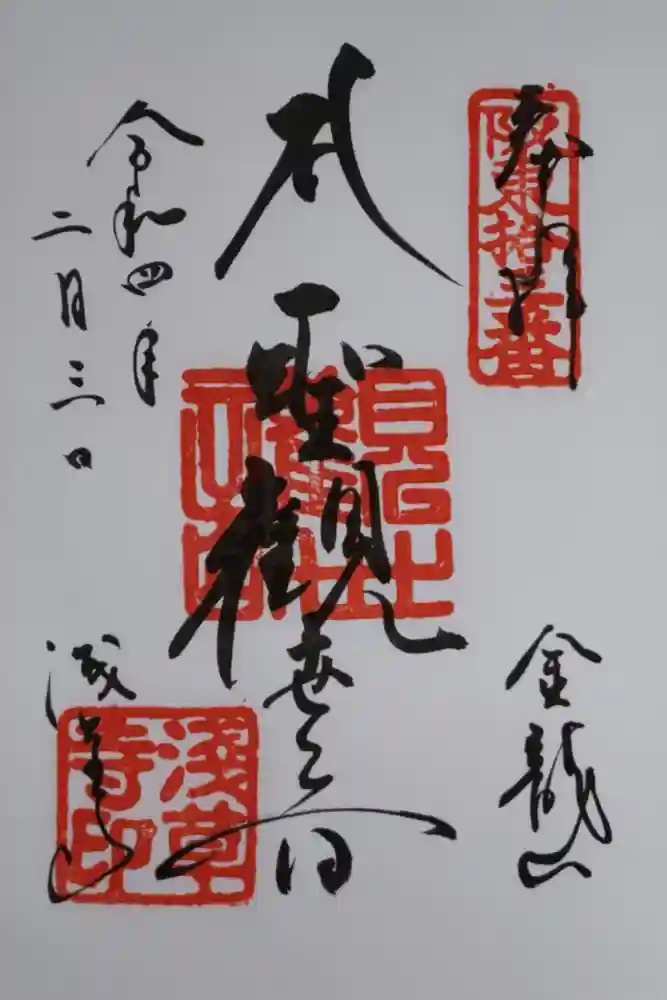 奉拝
阪東拾三番
金龍山
聖観世音
令和四年
二月三日
浅草寺
淺草
寺印